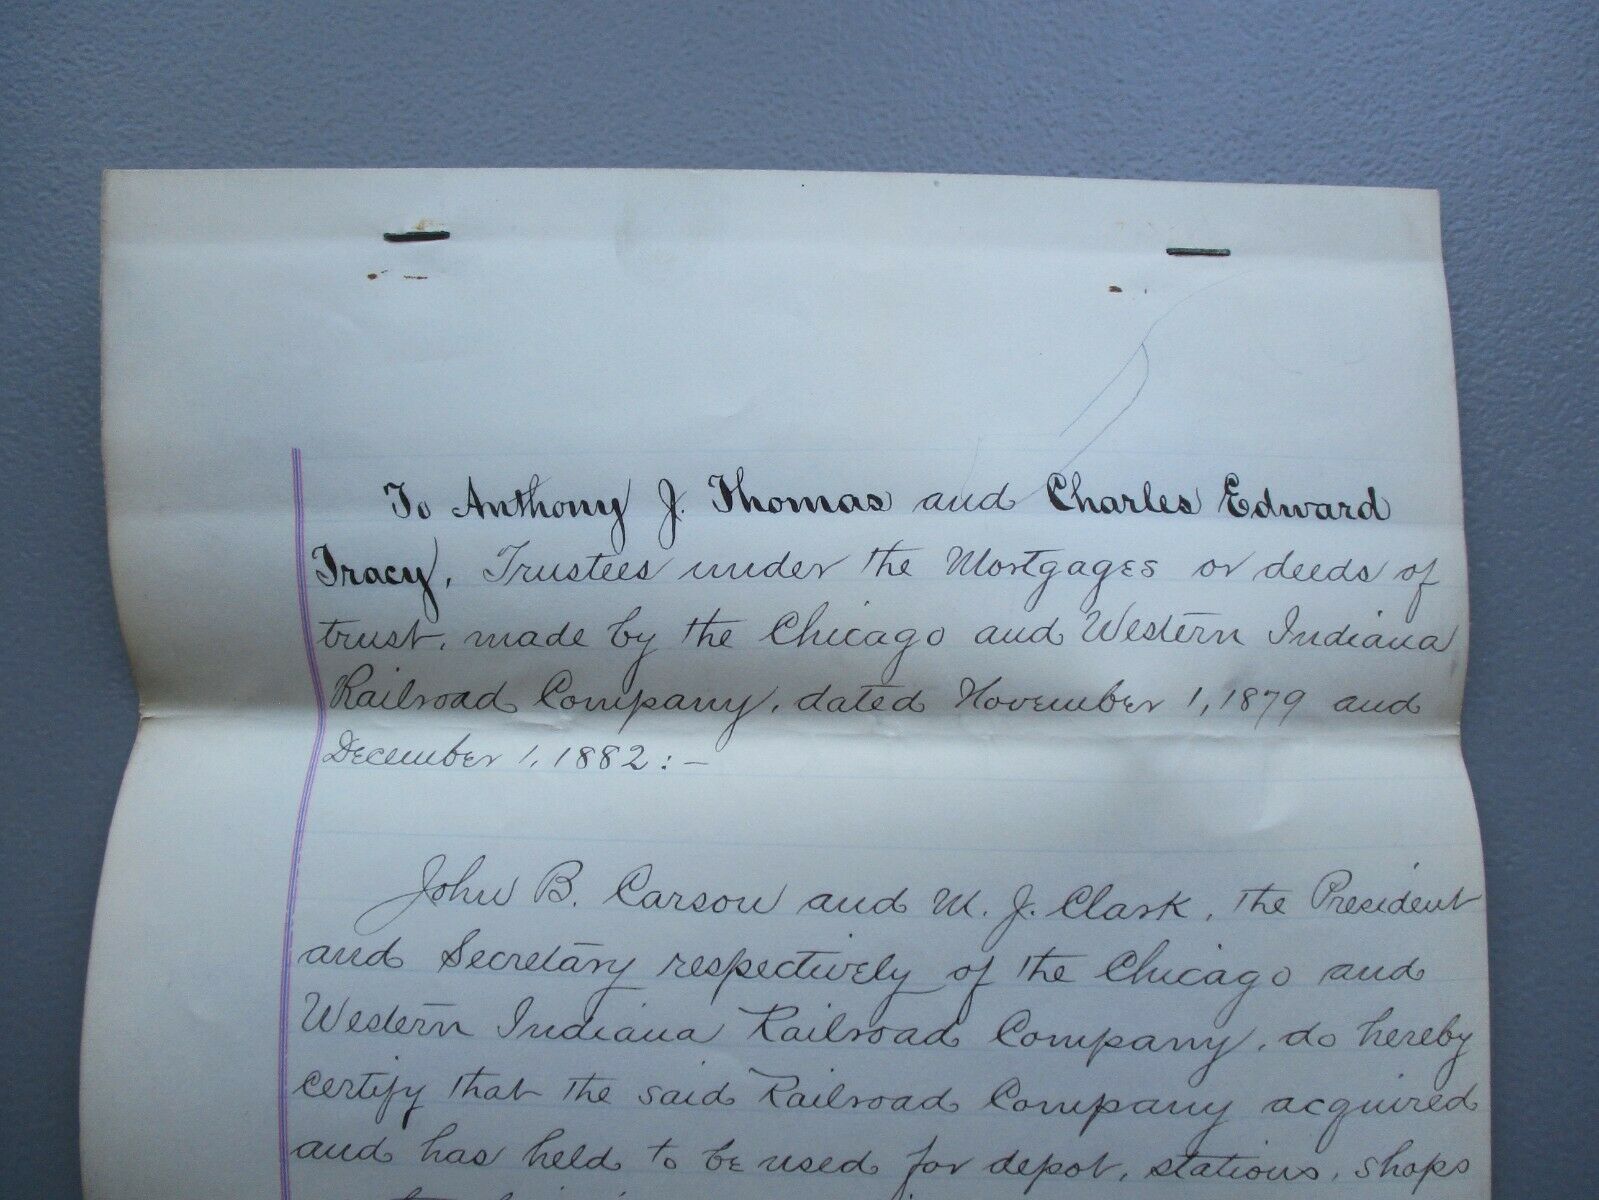 To Anthony J. Thomas and Charles Edward
Tracy, Trustees under the Mortgages or deeds of
trust, made by the Chicago and Western Indiana
Railroad Company, dated November 1, 1879 and
December 1, 1882:—
John B. Carson and M. J. Clark, the President
and Secretary respectively of the Chicago and
Western Indiana Railroad Company, do hereby
certify that the said Railroad Company acquired
and has held to be used for depot, stations, shops